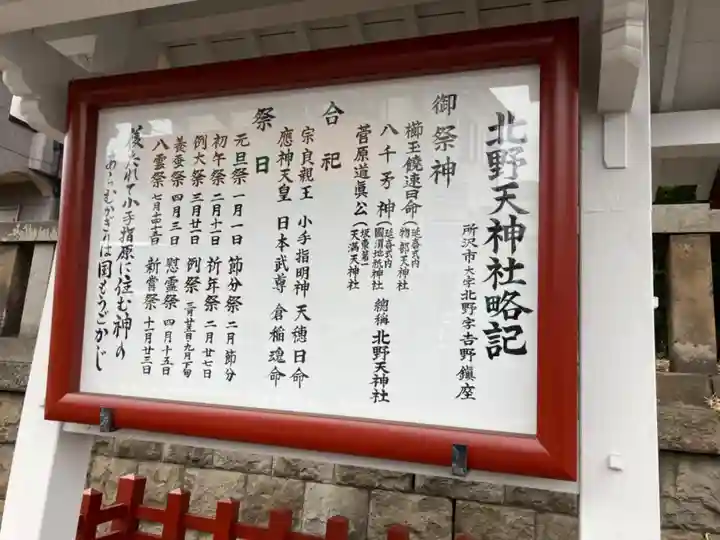 北野天神社略記
所沢市大字北野字吉野鎮座
御祭神
櫛玉饒速日命(延喜式内 物部天神社
八千矛神(延喜式内 國渭地祇神社
菅原道眞公(坂東第一 天満天神社
総稱 北野天神社
合祀
宗良親王 小手指明神 天穂日命
應神天皇 日本武尊 倉稲魂命
祭日
元旦祭 一月一日 節分祭 二月節分
初午祭 二月十一日 祈年祭 二月廿七日
例大祭 三月廿一日 例祭
養蚕祭 四月三日 慰霊祭 四月十五日
八雲祭 七月十四十五日 新嘗祭 十一月廿三日
小手指原に住む神の
あらむかぎりは国もうごかじ